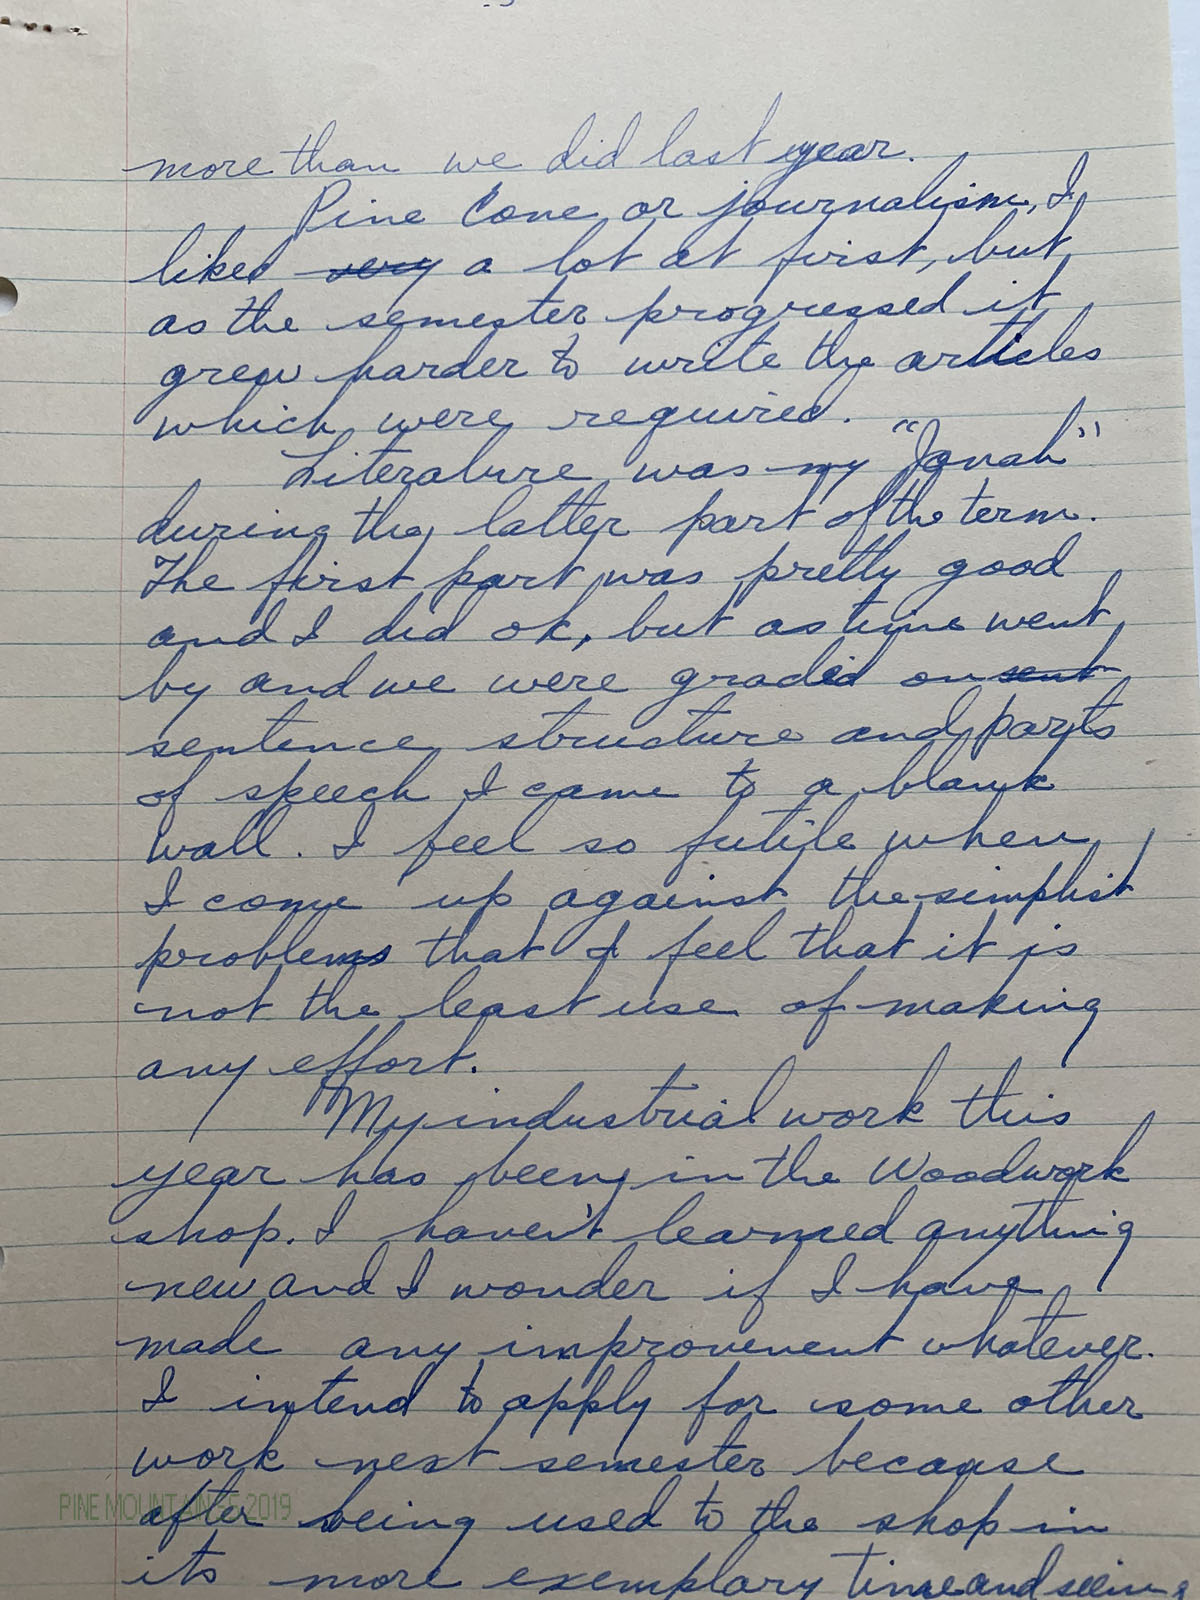 more than we did last year.
Pine Cone or journalism, I
liked very a lot at first, but
as the semester progressed it
grew harder to write the articles
which were required.
Literature was my "Jonah"
during the latter part of the term.
The first part was pretty good
and I did ok, but as time went
by and we were graded on sent
sentence structure and parts
of speech I came to a blank
wall. I feel so futile when
I come up against the simplist
problems that I feel that it is
not the least use of making
any effort.
My industrial work this
year has been in the Woodwork
shop. I haven't learned anything
new and I wonder if I have
made any improvement whatever.
I intend to apply for some other
work next semester because
PINE MOUNTAIN SS 2019
after being used to the shop in
its more exemplary time and seeing